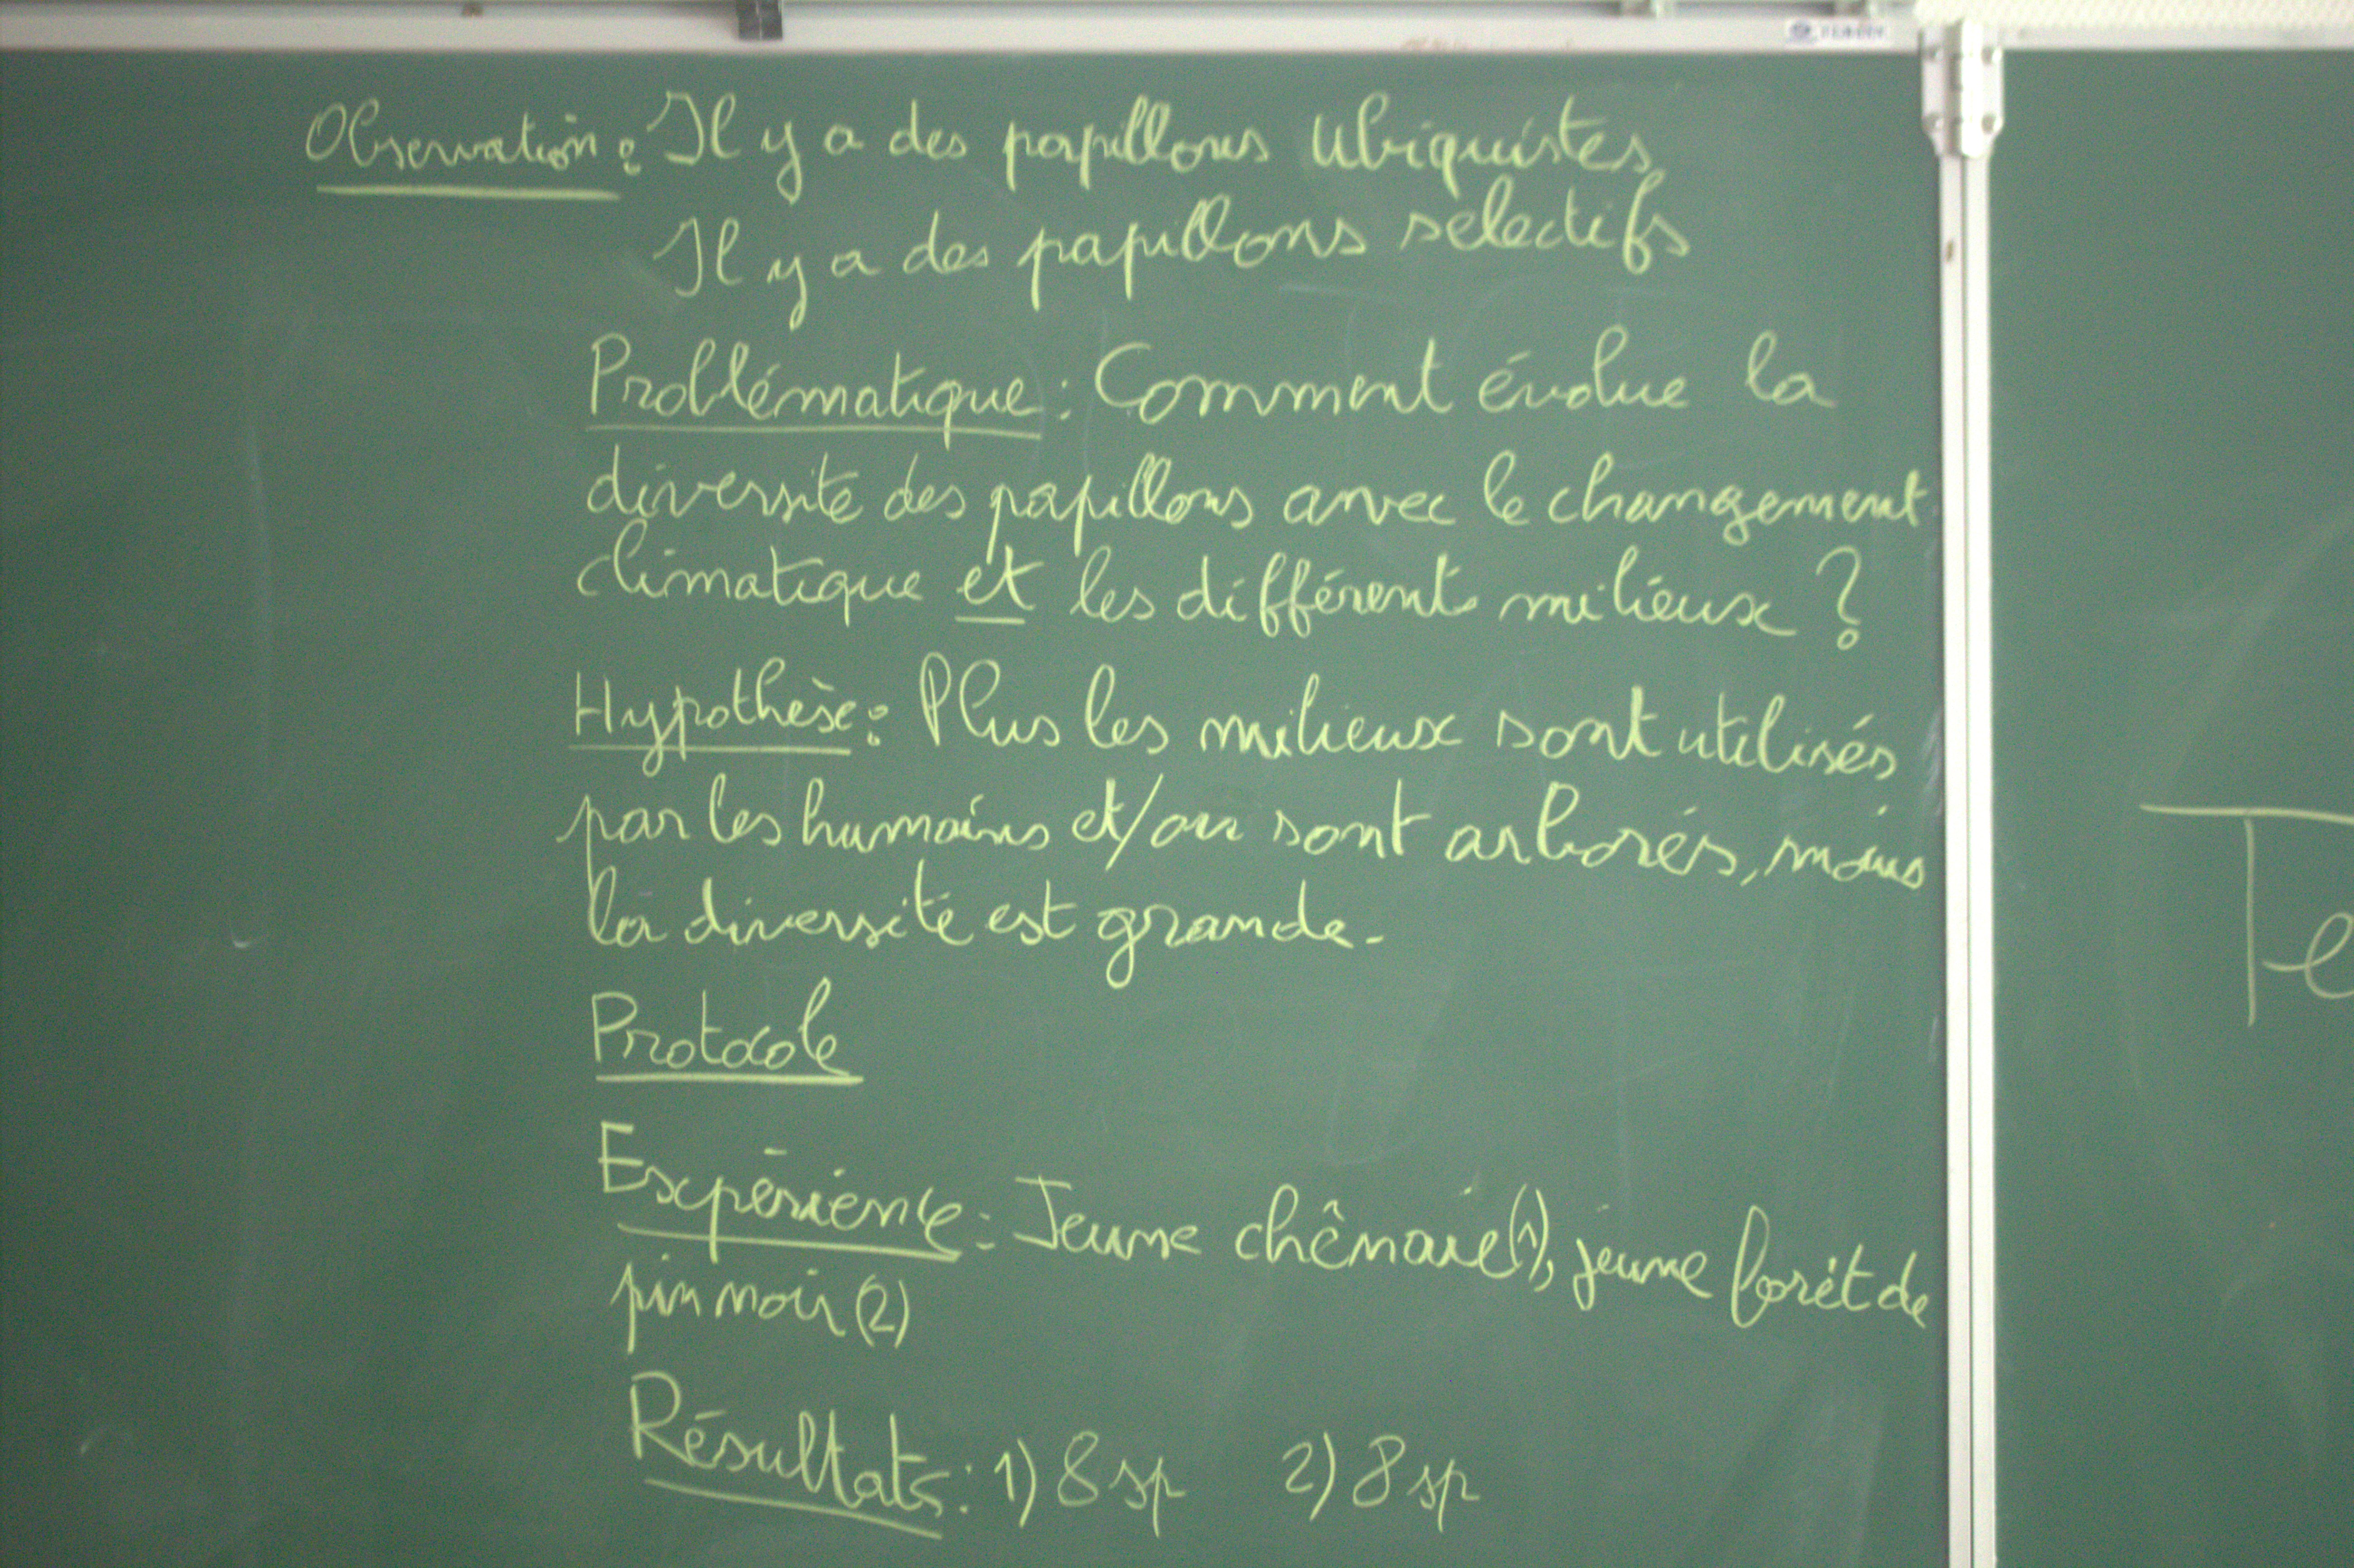 Observation : Il y a des papillons ubiquistes
Il y a des papillons sélectifs
Problématique : Comment évolue la
diversité des papillons avec le changement
climatique et les différents milieux ?
Hypothèse : Plus les milieux sont utilisés
par les humains et/ou sont arborés, moins
la diversité est grande.
Protocole
Expérience : Jeune chênaie(1), jeune forêt de
pin noir (2)
Résultats : 1) 8 sp 2) 8 sp
Te